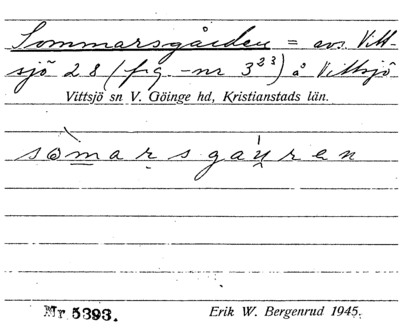 Sommarsgården = avs. Vitt-
sjö 28 (fig.-nr 3²³) å Vittsjö
Vittsjö sn V. Göinge hd, Kristianstads län.
sòmarsgaúren
Nr 5393.
Erik W. Bergenrud 1945.